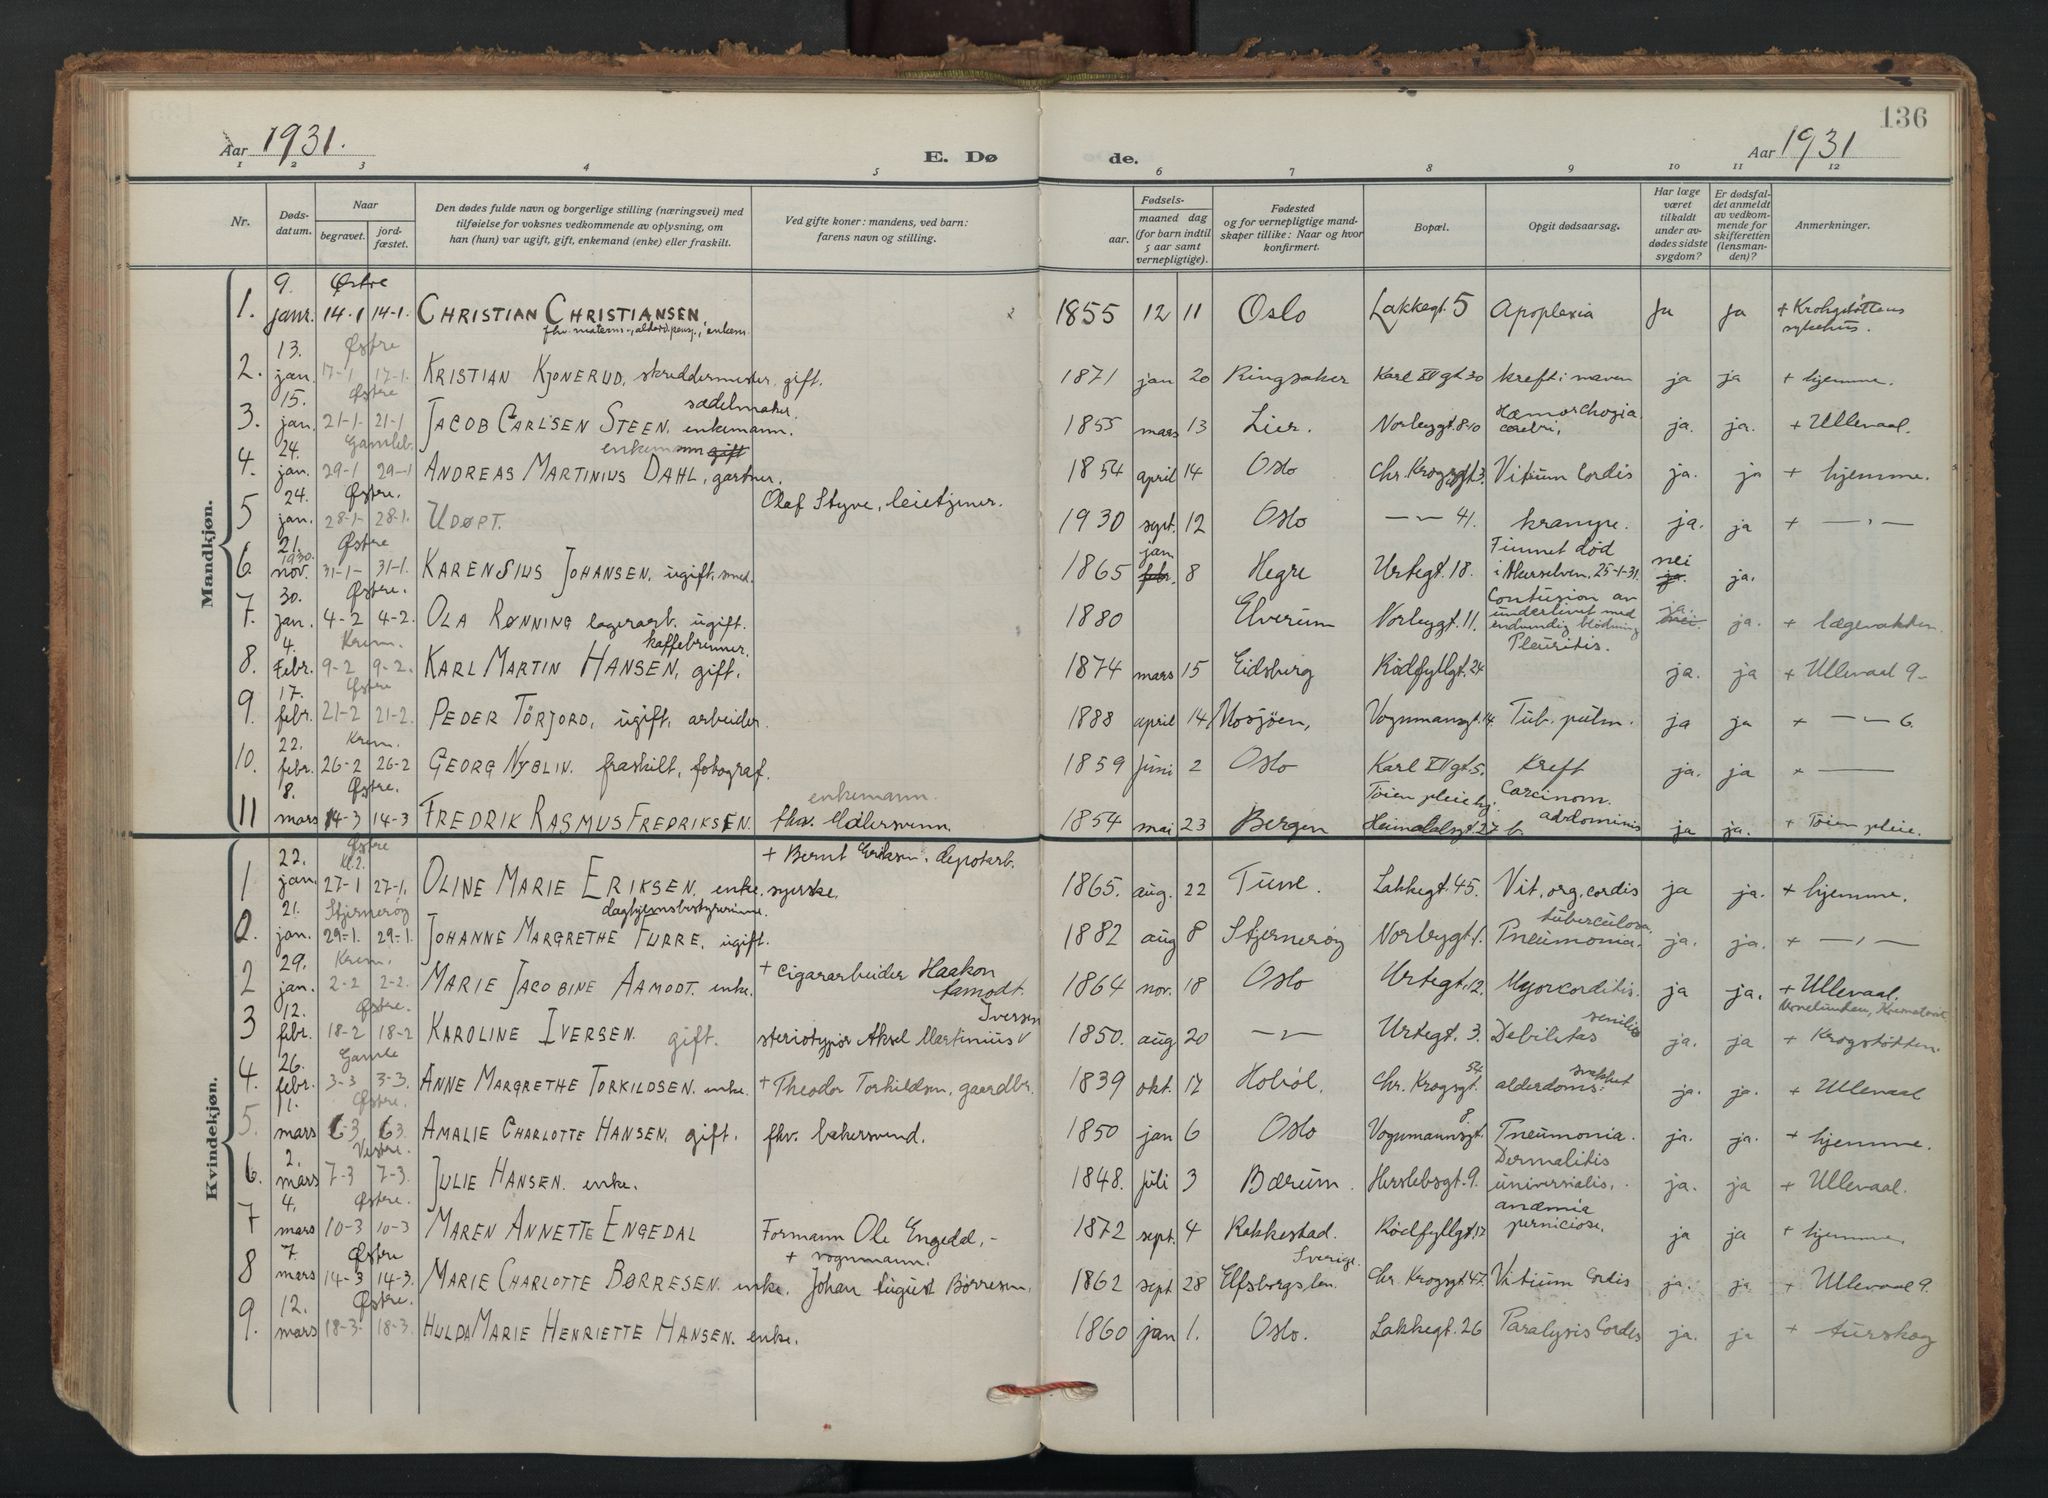 136
Aar 1931.
E. Dø
de.
Aar 1931
1 2 3 4 5 6 7 8 9 10 11 12
Nr.
Døds-
datum.
Naar
begravet.
jord-
fæstet.
Den dødes fulde navn og borgerlige stilling (næringsvei) med
tilføielse for voksnes vedkommende av oplysning, om
han (hun) var ugift, gift, enkemand (enke) eller fraskilt.
Ved gifte koner: mandens, ved barn:
farens navn og stilling.
Fødsels-
aar.
maaned dag
(for barn indtil
5 aar samt
vernepligtige).
Fødested
og for vernepligtige mand-
skaper tillike: Naar og hvor
konfirmert.
Bopæl.
Opgit dødsaarsag.
Har læge
været
tilkaldt
under av-
dødes sidste
sygdom?
Er dødsfal-
det anmeldt
av vedkom-
mende for
skifteretten
(lensman-
den)?
Anmerkninger.
Mandkjøn.
1. 9. janr. Østre 14-1 14-1. CHRISTIAN CHRISTIANSEN, enkem 1855 12 11 Oslo Lakkegt. 5 Apoplexia Ja Ja + Krohgstøttens sykehus.
2. 13. jan. Østre 17-1 17-1. KRISTIAN KJONERUD, skreddermester, gift. 1871 jan 20 Ringsaker Karl XII gt. 30 kreft i maven ja ja + hjemme.
3. 15. jan. Østre 21-1 21-1 JACOB CARLSEN STEEN, sadelmaker. enkemann. 1855 mars 13 Lier. Norbygt. 8-10 Hæmorchogia cerebri, ja. ja. + Ullevaal.
4. 24. jan. Gamleb. 29-1 29-1 ANDREAS MARTINIUS DAHL, gartner. enkemann gift 1854 april 14 Oslo Chr. Krogsgt. 3. Vitium Cordis ja. ja + hjemme.
5 24. jan. Østre. 28-1- 28-1. UDØPT. Olaf Styve, leietjener. 1930 sept. 12 Oslo — 41. krampe. ja. ja + — , —
6. 21. nov. 1930. Østre 31-1- 31-1. KARENSIUS JOHANSEN, ugift, smed. 1865 jan. febr. 8 Hegre Urtegt. 18. Funnet død i Akerselven. 25-1-31. nei ja. ja.
7. 30. jan. Østre. 4-2 4-2. OLA RØNNING lagerarb. ugift. 1880 Elverum Norbygt. 11. Contusion av underlivet med indvendig blødning ja. nei. ja. + lægevakten.
8. 4. Febr. Krem. 9-2 9-2. KARL MARTIN HANSEN, kaffebrenner. gift. 1874 mars 15 Eidsberg Rødfyllgt. 24 Pleuritis. ja. ja + Ullevaal 9-
9. 17. febr. Østre 21-2 21-2. PEDER TÖRJORD, ugift, arbeider. 1888 april 14 Mosjøen, Vognmansgt. 14. Tub. pulm. ja ja + — 6.
10. 22. febr. Krem. 26-2 26-2 GEORG NYBLIN. fraskilt, fotograf. 1859 Juni 2 Oslo Karl XII gt. 5. Kreft ja. ja + —
11 8. mars Østre. 14-3 14-3 FREDRIK RASMUS FREDRIKSEN. enkemann. fhv. Malersvenn 1854 mai 23 Bergen Tøien pleiehj. Heimdalsgt. 27 b. Carcinom. abdominis ja ja. + Tøien pleie.
Kvindekjøn.
1 22. jan. Østre Kl. 2. 27-1 27-1. OLINE MARIE ERIKSEN, enke. syerske. + Bernt Eriksen, depotarb. 1865. aug. 22 Tune. Lakkegt. 45. Vit. org. cordis ja ja. + hjemme.
2. 21. jan. Stjernerøy 29-1. 29-1. JOHANNE MARGRETHE FURRE, daghjemsbestyrerinne. ugift. 1882 aug 8 Stjernerøy Norbygt. 1. tuberculosa Pneumonia. ja. ja. + — , —
2 29. jan. Krem. 2-2 2-2. MARIE JACOBINE AAMODT. enke. + cigararbeider Haakon Aamodt. 1864 nov. 18 Oslo Urtegt. 12. Myorcorditis. ja ja. + Ullevaal. Urnelunden, Krematoriet
3 12. febr. Østre. 18-2 18-2 KAROLINE IVERSEN. gift. steriotypør Aksel Martinius Iversen 1850. aug 20 — Urtegt. 3. Debilitas senilis ja. ja + Krogstøtten.
4. 26. febr. Gamle 3-3 3-3. ANNE MARGRETHE TORKILDSEN. enke. + Theodor Torkildsen, gaardbr. 1839 okt. 17 Hobøl. Chr. Krogsgt. 54. alderdoms: svakhet ja. ja. + Ullevaal
5. 1. mars Østre. 6-3 6 3. AMALIE CHARLOTTE HANSEN, gift. fhv. bakersvend. 1850 jan 6 Oslo Vognmannsgt. 8 Pneumonia. ja. ja. + hjemme.
6. 2. mars Vestre. 7-3 7-3. JULIE HANSEN. enke. 1848. juli 3 Bærum. Herslebsgt. 9. Dermalitis universialis, ja. ja + Ullevaal.
7 4. mars Østre. 10-3 10-3 MAREN ANNETTE ENGEDAL Formann Ole Engedal, - 1872 sept. 4 Rakkestad. Rødfyllgt. 12 anæmia perniciose. ja ja + hjemme.
8 7. mars Østre 14-3 14-3. MARIE CHARLOTTE BØRRESEN. enke. + vognmann. Johan August Børresen. 1862 sept 28 Elfsborgs len. Sverige. Chr. Krogsgt. 47. Vitium Cordis ja. ja + Ullevaal 9.
9. 12. mars Østre. 18-3- 18-3. HULDA MARIE HENRIETTE HANSEN. enke. 1860 jan 1. Oslo. Lakkegt. 26 Paralysis Cordes ja. ja + Aurskog